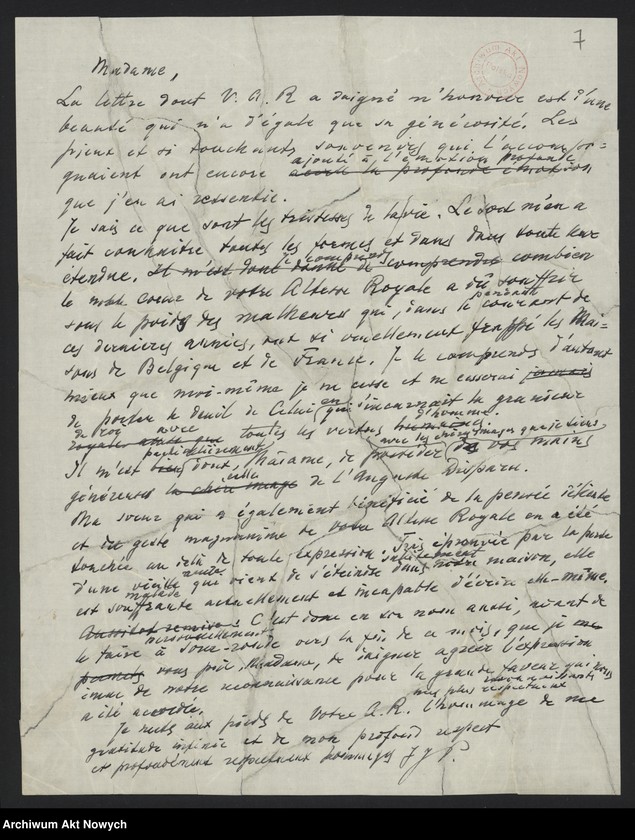 7
Madame,
La lettre dont V. A. R a daigné m'honorer est d'une
beauté qui n'a d'égale que sa générosité. Les
pieux et si touchants souvenirs qui l'accompa-
gnaient ont encore ajouté à l'émotion profonde
que j'en ai ressentie.
Je sais ce que sont les tristesses de la vie. Le sort m'en a
fait connaître toutes les formes et dans toute leur
étendue. Je comprends combien
le noble coeur de votre Altesse Royale a dû souffrir
sous le poids des malheurs qui, pendant le courant de
ces dernières années, ont si cruellement frappé les Mai-
sons de Belgique et de France. Je le comprends d'autant
mieux que moi-même je ne cesse et ne cesserai jamais
de porter le deuil de Celui en qui s'incarnait la grandeur
de roi avec toutes les vertus d'homme.
Il m'est particulièrement doux, Madame, de posséder avec les chères images que je tiens de vos mains
généreuses celle de l'Auguste Disparu.
Ma soeur qui a également bénéficié de la pensée délicate
et du geste magnanime de votre Altesse Royale en a été
touchée au delà de toute expression. éprouvée par la perte
d'une vieille amie que vient de s'éteindre dans notre maison, elle
est souffrante actuellement et incapable d'écrire elle-même.
C'est donc en son nom aussi, avant de
le faire à vers la fin de ce mois, que je
vous prie, Madame, de daigner agréer l'expression
émue de notre reconnaissance pour la grande faveur qui nous
a été accordée.
Je mets aux pieds de Votre A. R. l'hommage de ma
gratitude infinie et de mon profond respect
et profondément respectueux hommages J y P.
Archiwum Akt Nowych